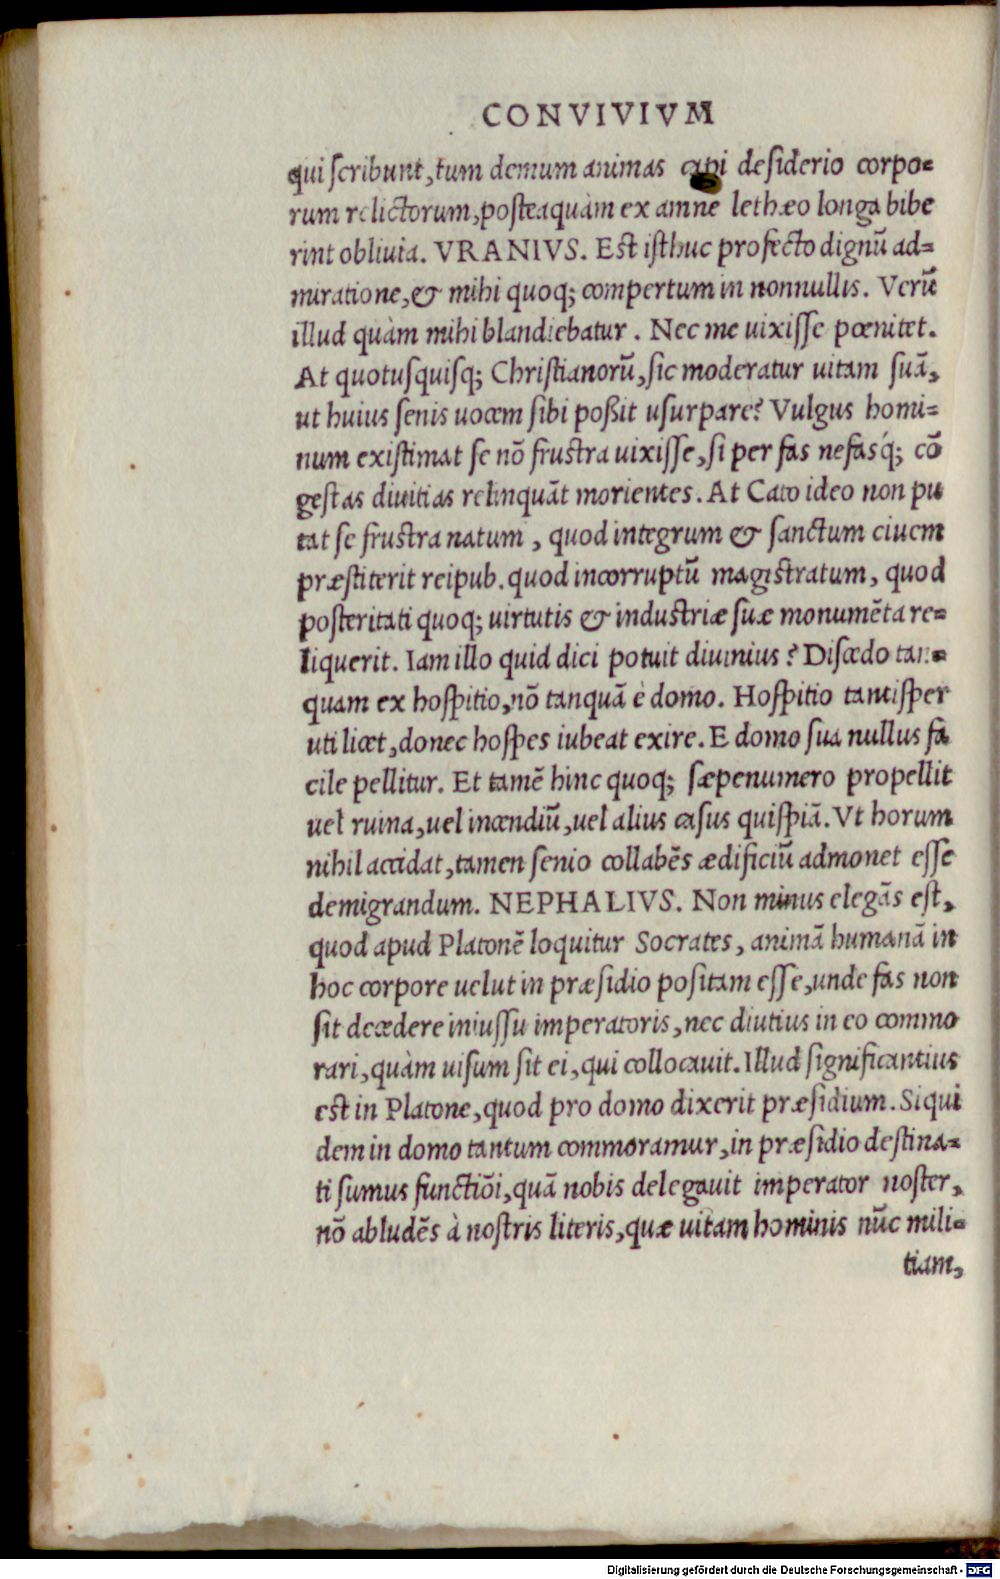 CONVIVIVM
qui scribunt, tum demum animas capi desiderio corpo=
rum relictorum, posteaquàm ex amne lethæo longa bibe
rint obliuia. VRANIVS. Est isthuc profecto dignũ ad=
miratione, & mihi quoq; compertum in nonnullis. Verũ
illud quàm mihi blandiebatur. Nec me uixisse pœnitet.
At quotusquisq; Christianorũ, sic moderatur uitam suã,
ut huius senis uocem sibi poßit usurpare? Vulgus homi=
num existimat se nõ frustra uixisse, si per fas nefasq́; cõ
gestas diuitias relinquãt morientes. At Cato ideo non pu
tat se frustra natum, quod integrum & sanctum ciuem
præstiterit reipub. quod incorruptũ magistratum, quod
posteritati quoq; uirtutis & industriæ suæ monumẽta re=
liquerit. Iam illo quid dici potuit diuinius? Discedo tan=
quam ex hospitio, nõ tanquã è domo. Hospitio tantisper
uti licet, donec hospes iubeat exire. E domo sua nullus fa
cile pellitur. Et tamẽ hinc quoq; sæpenumero propellit
uel ruina, uel incendiũ, uel alius casus quispiã. Vt horum
nihil accidat, tamen senio collabẽs ædificiũ admonet esse
demigrandum. NEPHALIVS. Non minus elegãs est,
quod apud Platonẽ loquitur Socrates, animã humanã in
hoc corpore uelut in præsidio positam esse, unde fas non
sit decedere iniussu imperatoris, nec diutius in eo commo
rari, quàm uisum sit ei, qui collocauit. Illud significantius
est in Platone, quod pro domo dixerit præsidium. Siqui
dem in domo tantum commoramur, in præsidio destina=
ti sumus functiõi, quã nobis delegauit imperator noster,
nõ abludẽs à nostris literis, quæ uitam hominis nũc mili=
tiam,
Digitalisierung gefördert durch die Deutsche Forschungsgemeinschaft - DFG